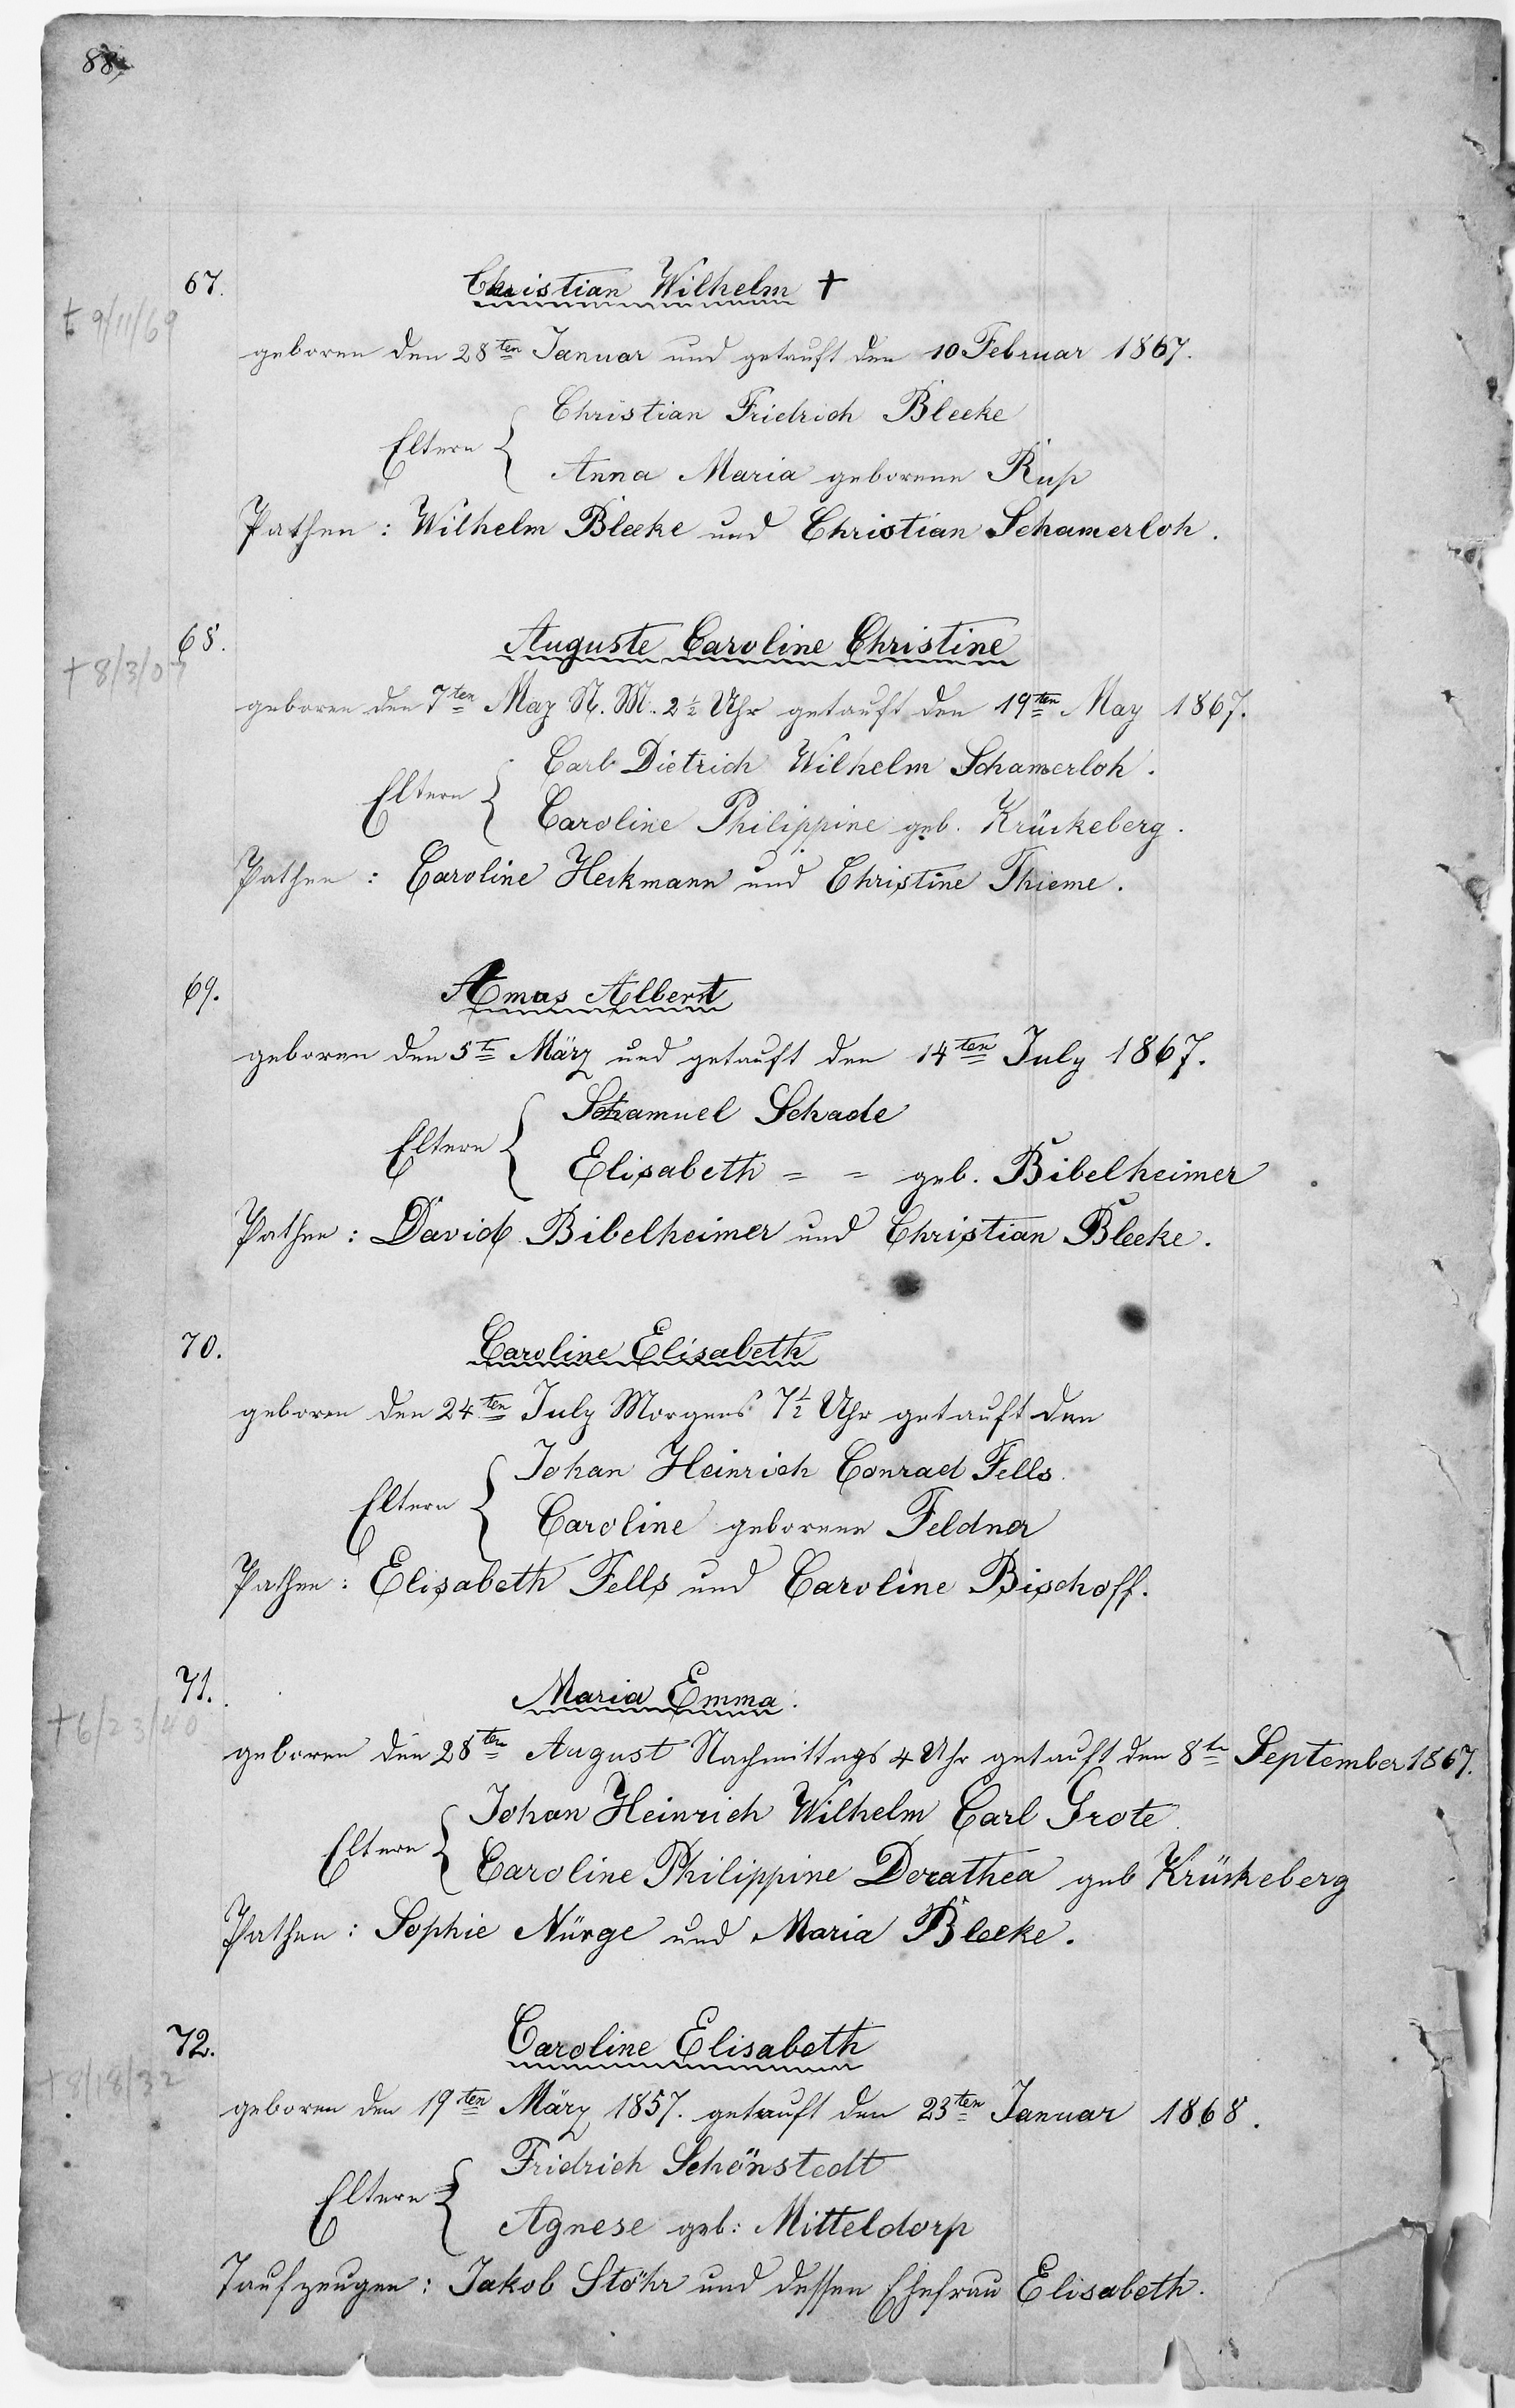 88.
67.
Christian Wilhelm †
† 9/11/69
geboren den 28ten Januar und getauft den 10 Februar 1867.
Christian Friedrich Bleeke
Eltern {
Anna Maria geborene Rup
Pathen : Wilhelm Bleeke und Christian Schamerloh.
68.
Auguste Caroline Christine
† 8/3/07
geboren den 7ten May N. M. 2½ Uhr getauft den 19ten May 1867.
Carl Dietrich Wilhelm Schamerloh.
Eltern {
Caroline Philippine geb. Krückeberg.
Pathen : Caroline Heckmann und Christine Thieme.
69.
Amos Albert
geboren den 5t März und getauft den 14ten July 1867.
Samuel Schade
Eltern {
Elisabeth = = geb. Bibelheimer
Pathen : David Bibelheimer und Christian Bleeke.
70.
Caroline Elisabeth
geboren den 24ten July Morgens 7½ Uhr getauft den
Johan Heinrich Conrad Fells
Eltern {
Caroline geborene Feldner
Pathen : Elisabeth Fells und Caroline Bischoff.
71.
Maria Emma.
† 6/23/40
geboren den 28ten August Nachmittags 4 Uhr getauft den 8tn September 1867.
Johan Heinrich Wilhelm Carl Grote
Eltern {
Caroline Philippine Dorathea geb Krückeberg
Pathen : Sophie Nürge und Maria Bleeke.
72.
Caroline Elisabeth
† 8/18/32
geboren den 19ten März 1857. getauft den 23ten Januar 1868.
Fridrich Schönstedt
Eltern {
Agnese geb: Mitteldorp
Taufzeugen : Jakob Stöhr und dessen Ehefrau Elisabeth.